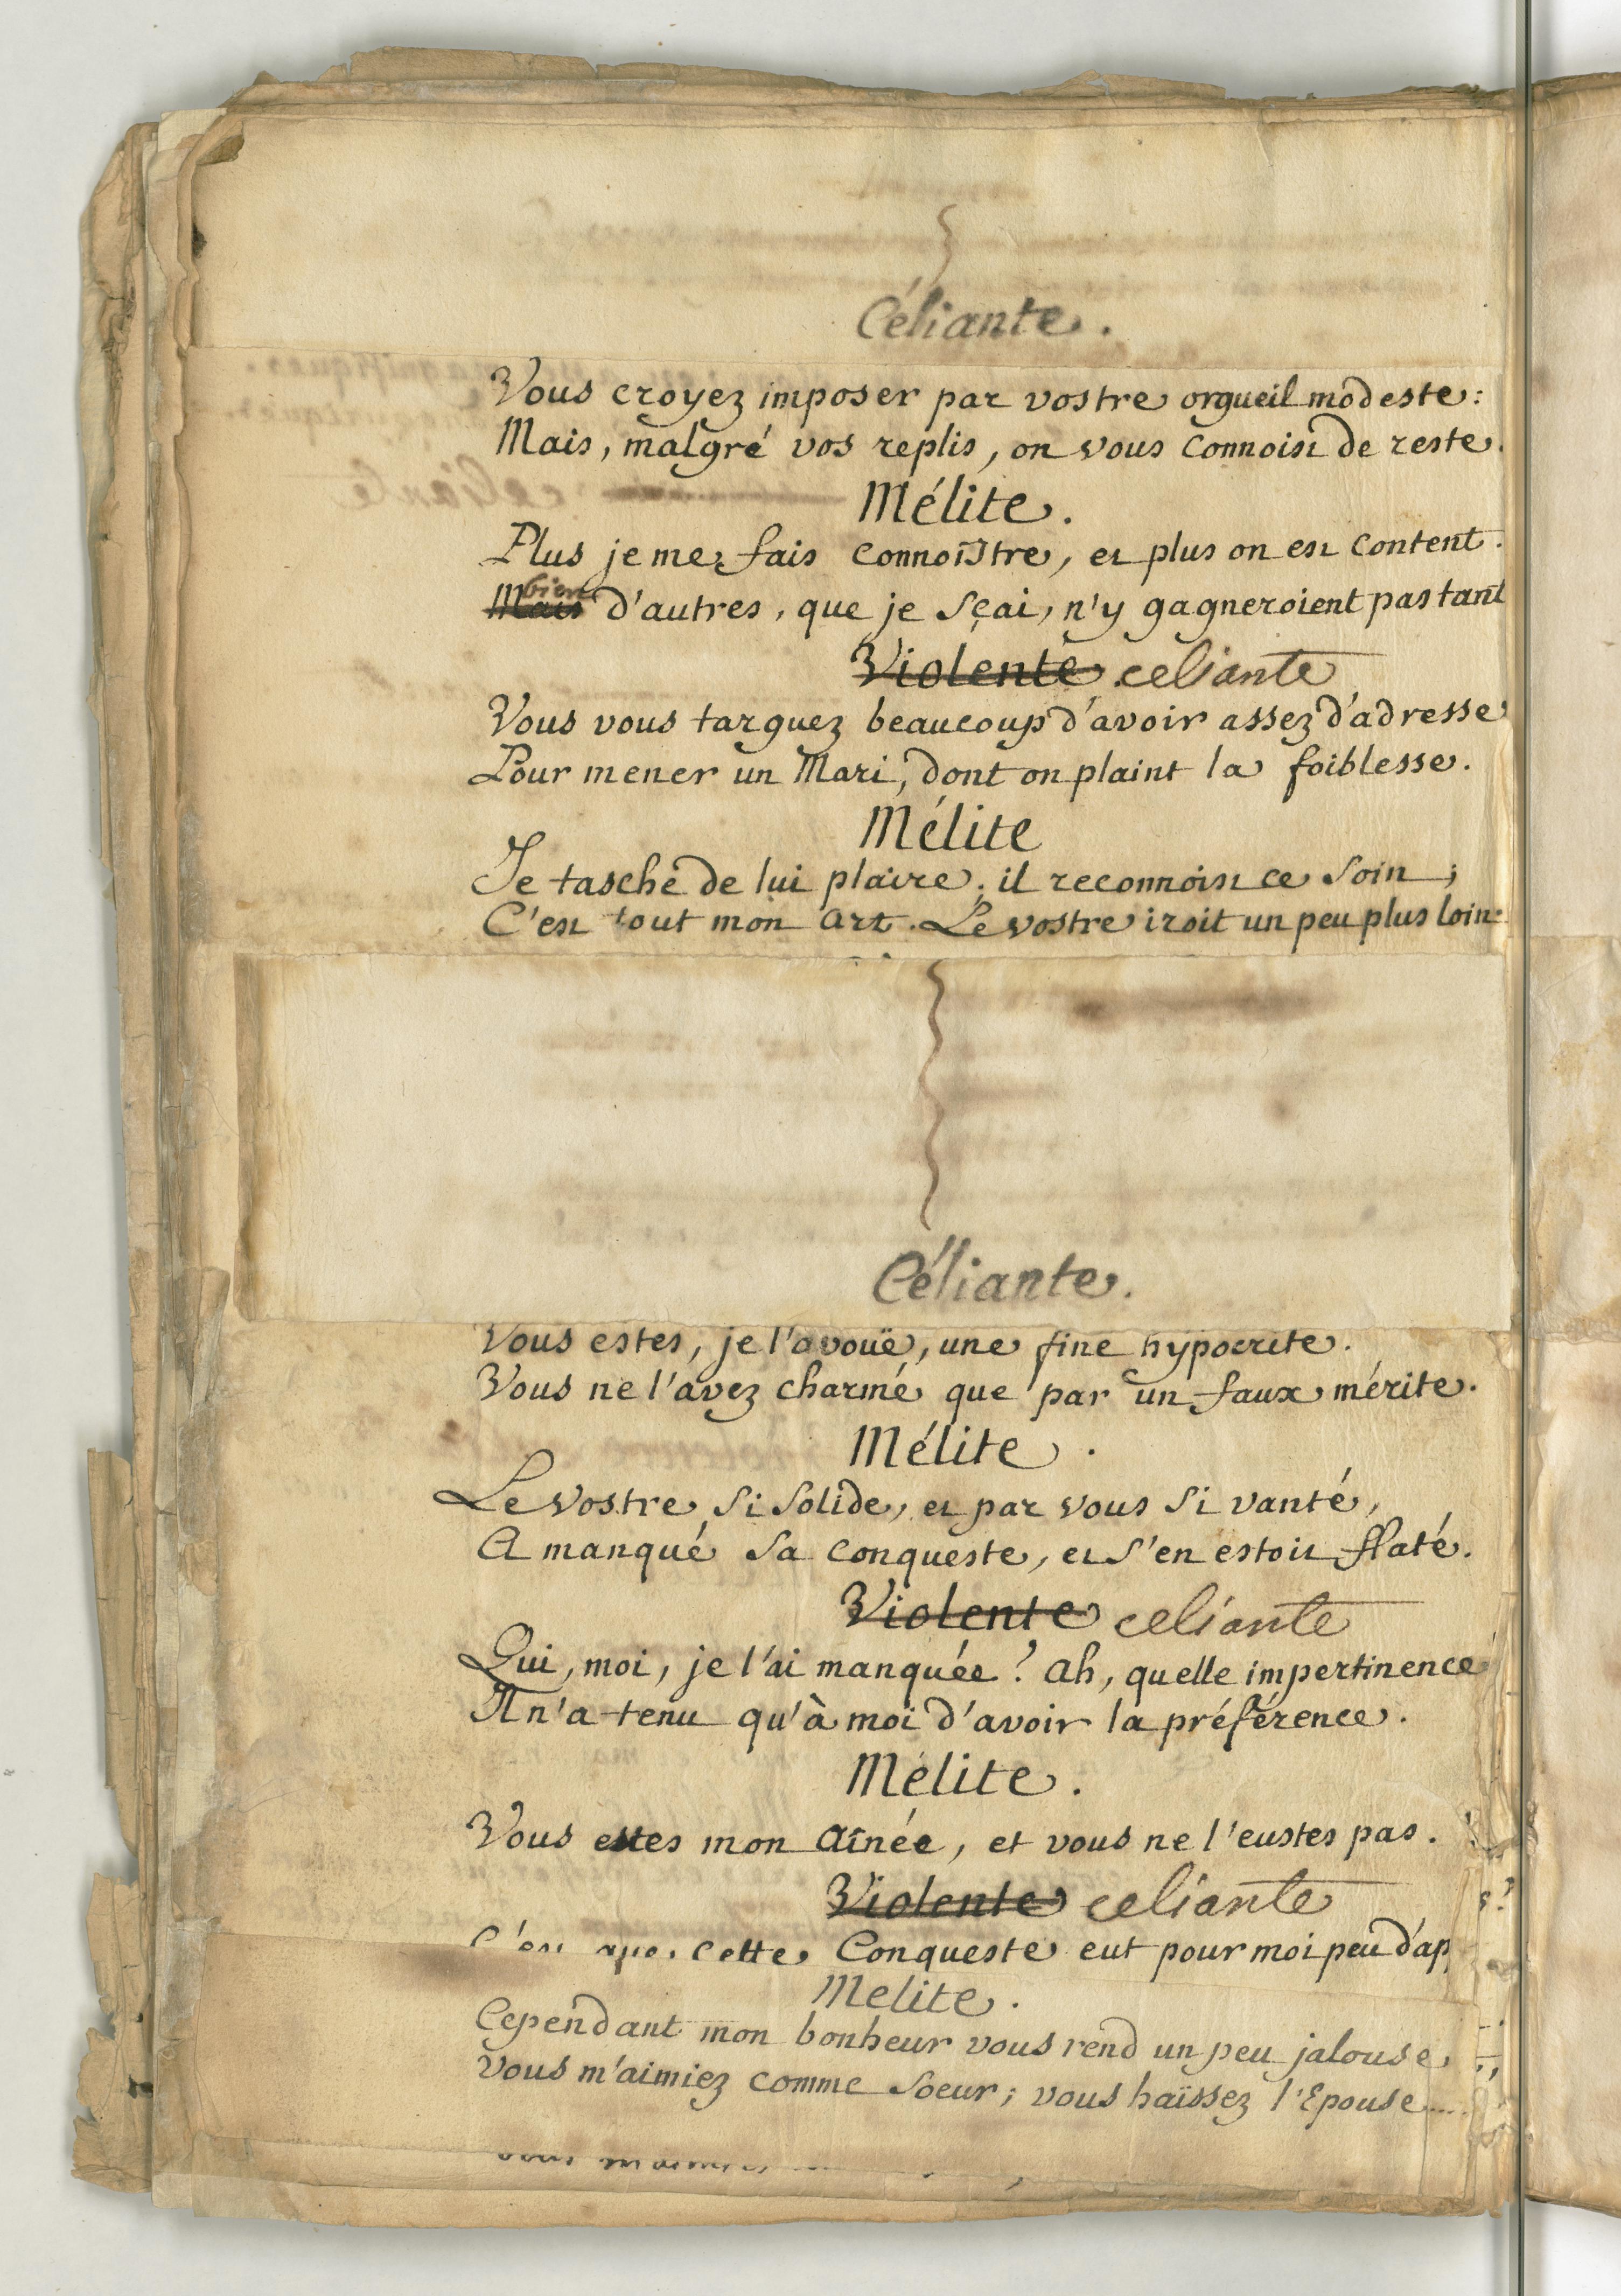 Céliante.
Vous croyez imposer par vostre orgueil modeste:
Mais, malgré vos replis, on vous connoist de reste.
Mélite.
Plus je me fais connoîstre, et plus on est content.
Mais bien d'autres, que je sçai, n'y gagneroient pas tant
Violente celiante
Vous vous targuez beaucoup d'avoir assez d'adresse
Pour mener un Mari, dont on plaint la foiblesse.
Mélite
Je tasche de lui plaire; il reconnoist ce soin;
C'est tout mon art. Le vostre iroit un peu plus loin.
Céliante.
Vous estes, je l'avouë, une fine hypocrite.
Vous ne l'avez charmé que par un faux mérite.
Mélite.
Le vostre si solide, et par vous si vanté,
A manqué sa conqueste, et s'en estoit flaté.
Violente celiante
Qui, moi, je l'ai manquée? Ah, quelle impertinence
Il n'a tenu qu'à moi d'avoir la préférence.
Mélite.
Vous estes mon aînée, et vous ne l'eustes pas.
Violente celiante
C'est que cette Conqueste eut pour moi peu d'ap
Melite.
Cependant mon bonheur vous rend un peu jalouse,
Vous m'aimiez comme soeur; vous haïssez l'Epouse....